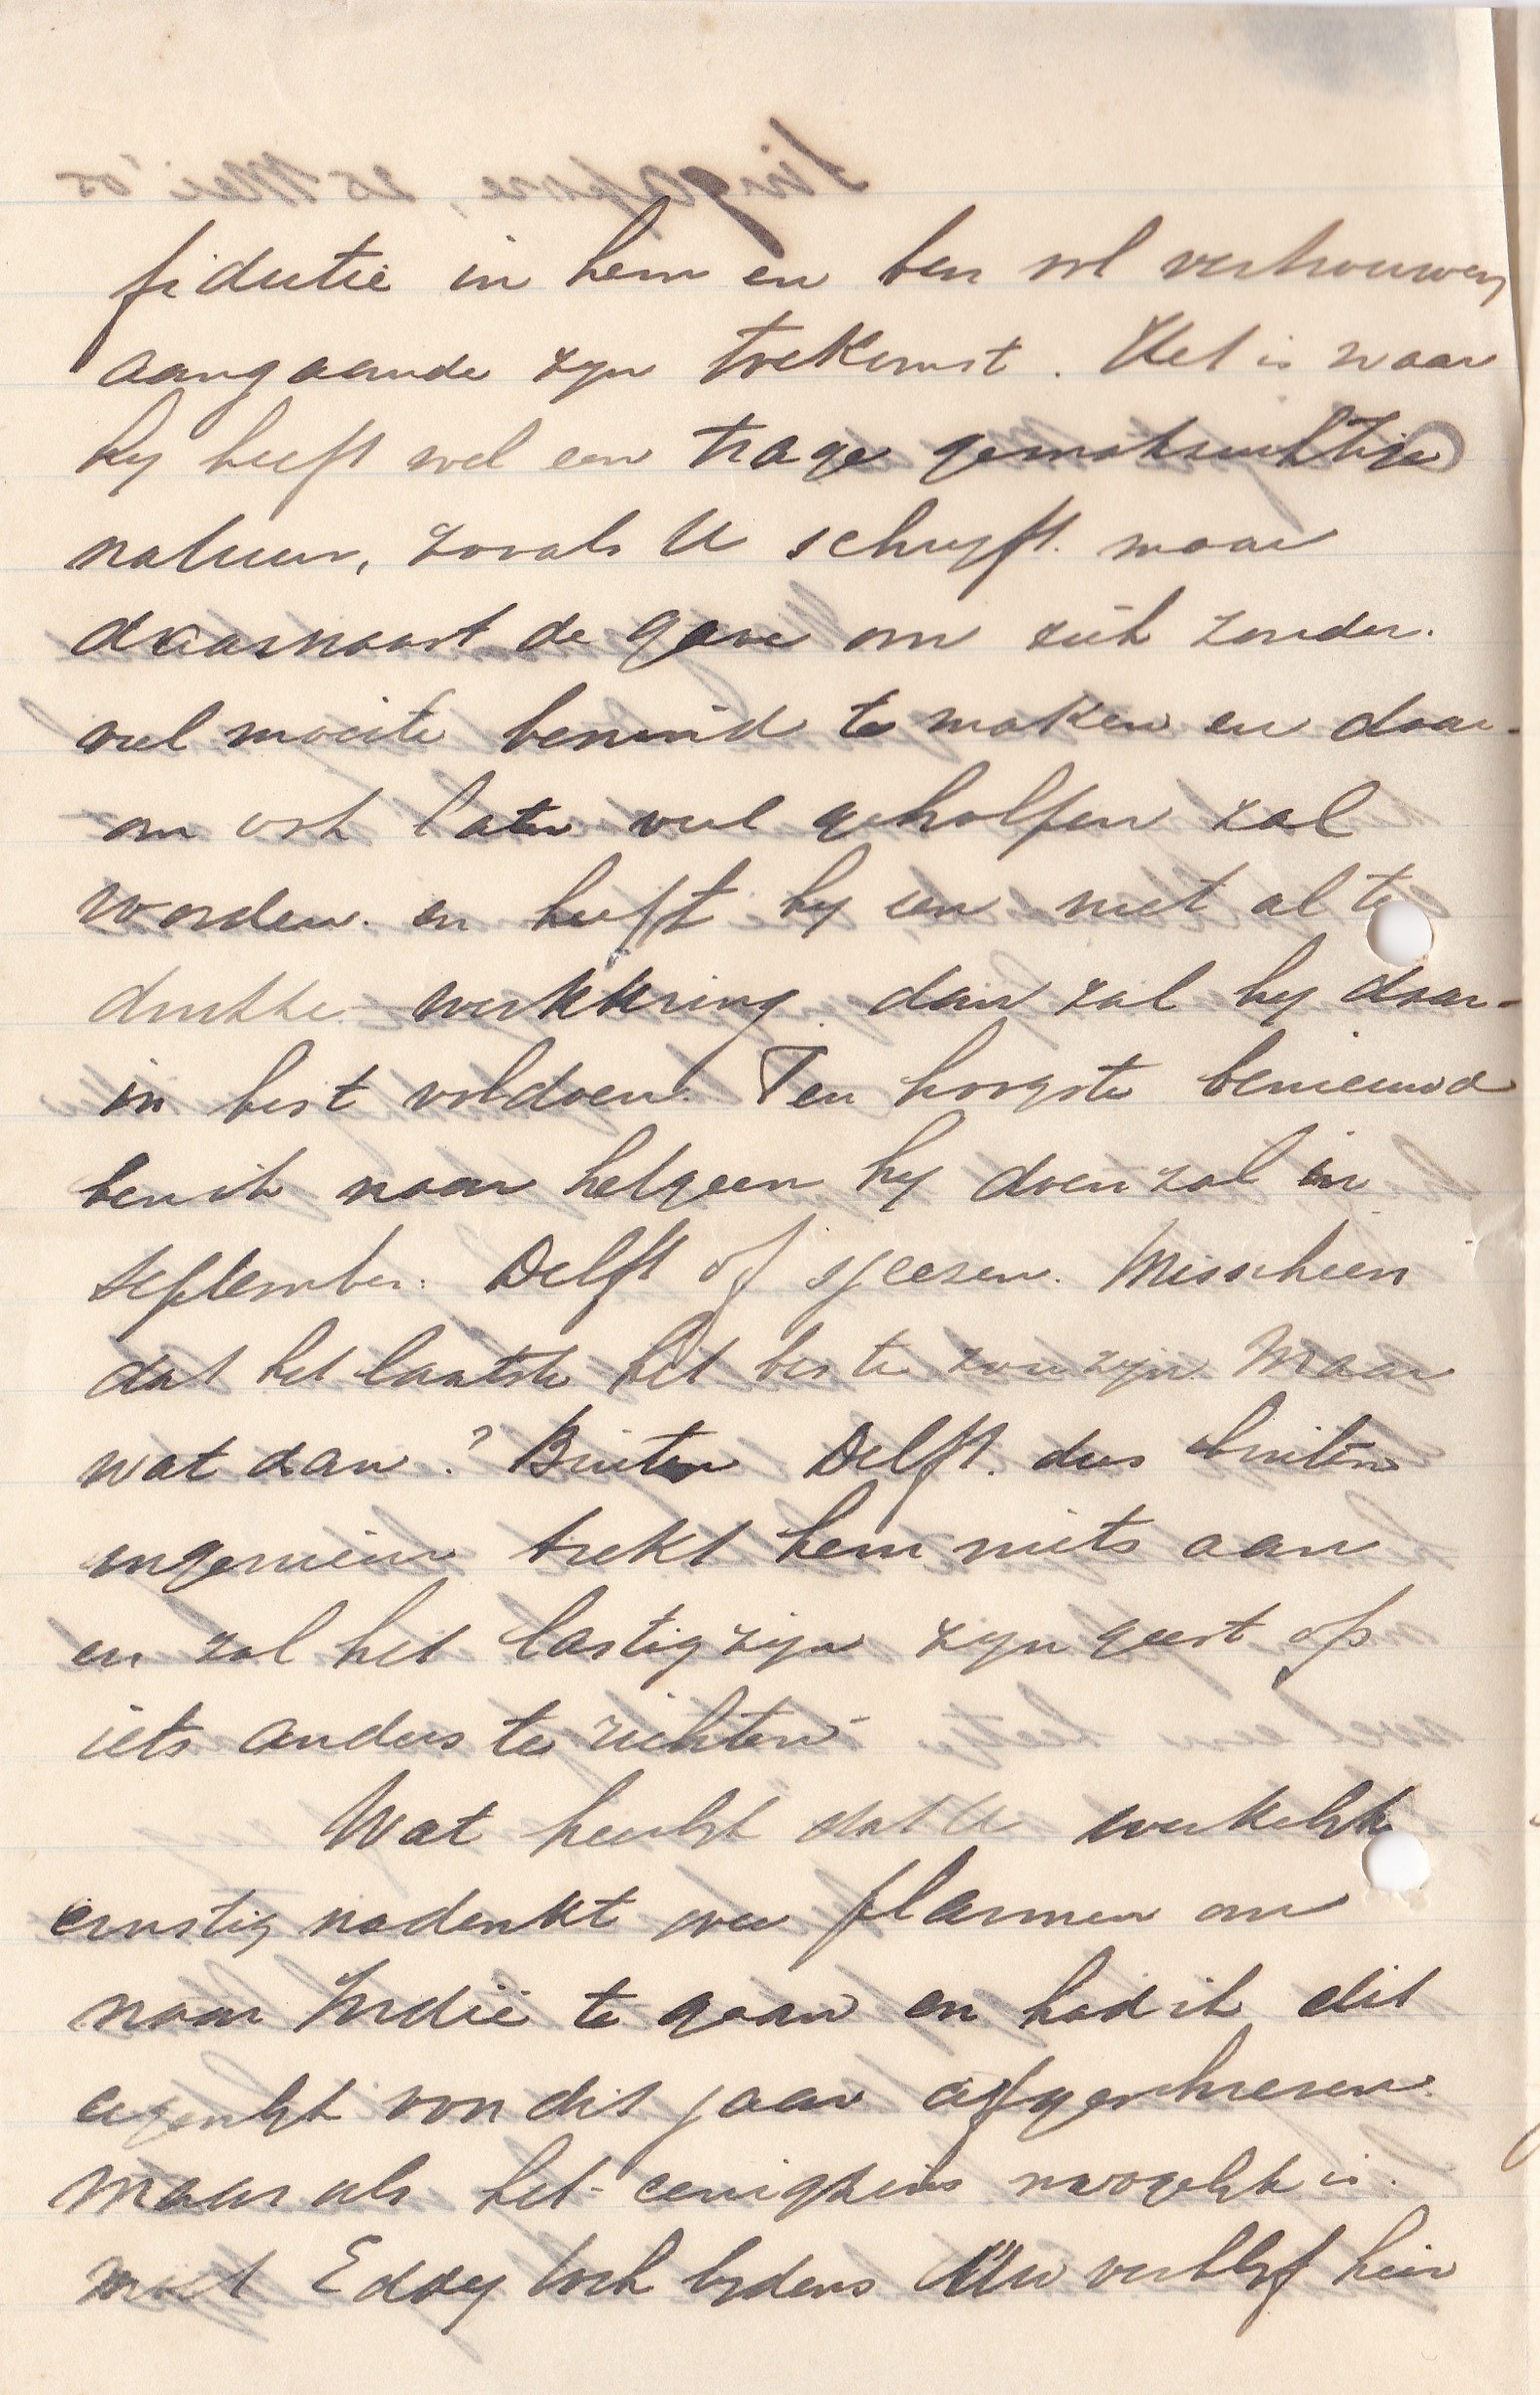 fidutie in hem en ben vol vertrouwen
aangaande zyn toekomst. Het is waar
hy heeft wel een trage gemakzuchtige
natuur, zooals U schryft. maar
daarnaast de gave om zich zonder.
veel moeite bemind te maken en daar-
om ook later veel geholpen zal
worden. en heeft hy een niet al te
drukke werkkring. dan zal hy daar-
in best voldoen. Ten hoogste benieuwd
ben ik naar hetgeen hy doen zal in
September. Delft of sjeezen. Misschien
dat het laatste het beste zou zyn. Maar
wat dan? Buiten Delft. dus buiten
ingenieur trekt hem niets aan
en zal het lastig zyn zyn geest op
iets anders te richten.
Wat heerlyk dat U werkelyk
ernstig nadenkt over plannen om
naar Indië te gaan en had ik dit
eigenlyk van dit jaar afgeschreven.
Maar als het eenigzins mogelyk is.
moet Eddy toch tydens Uw verblyf hier